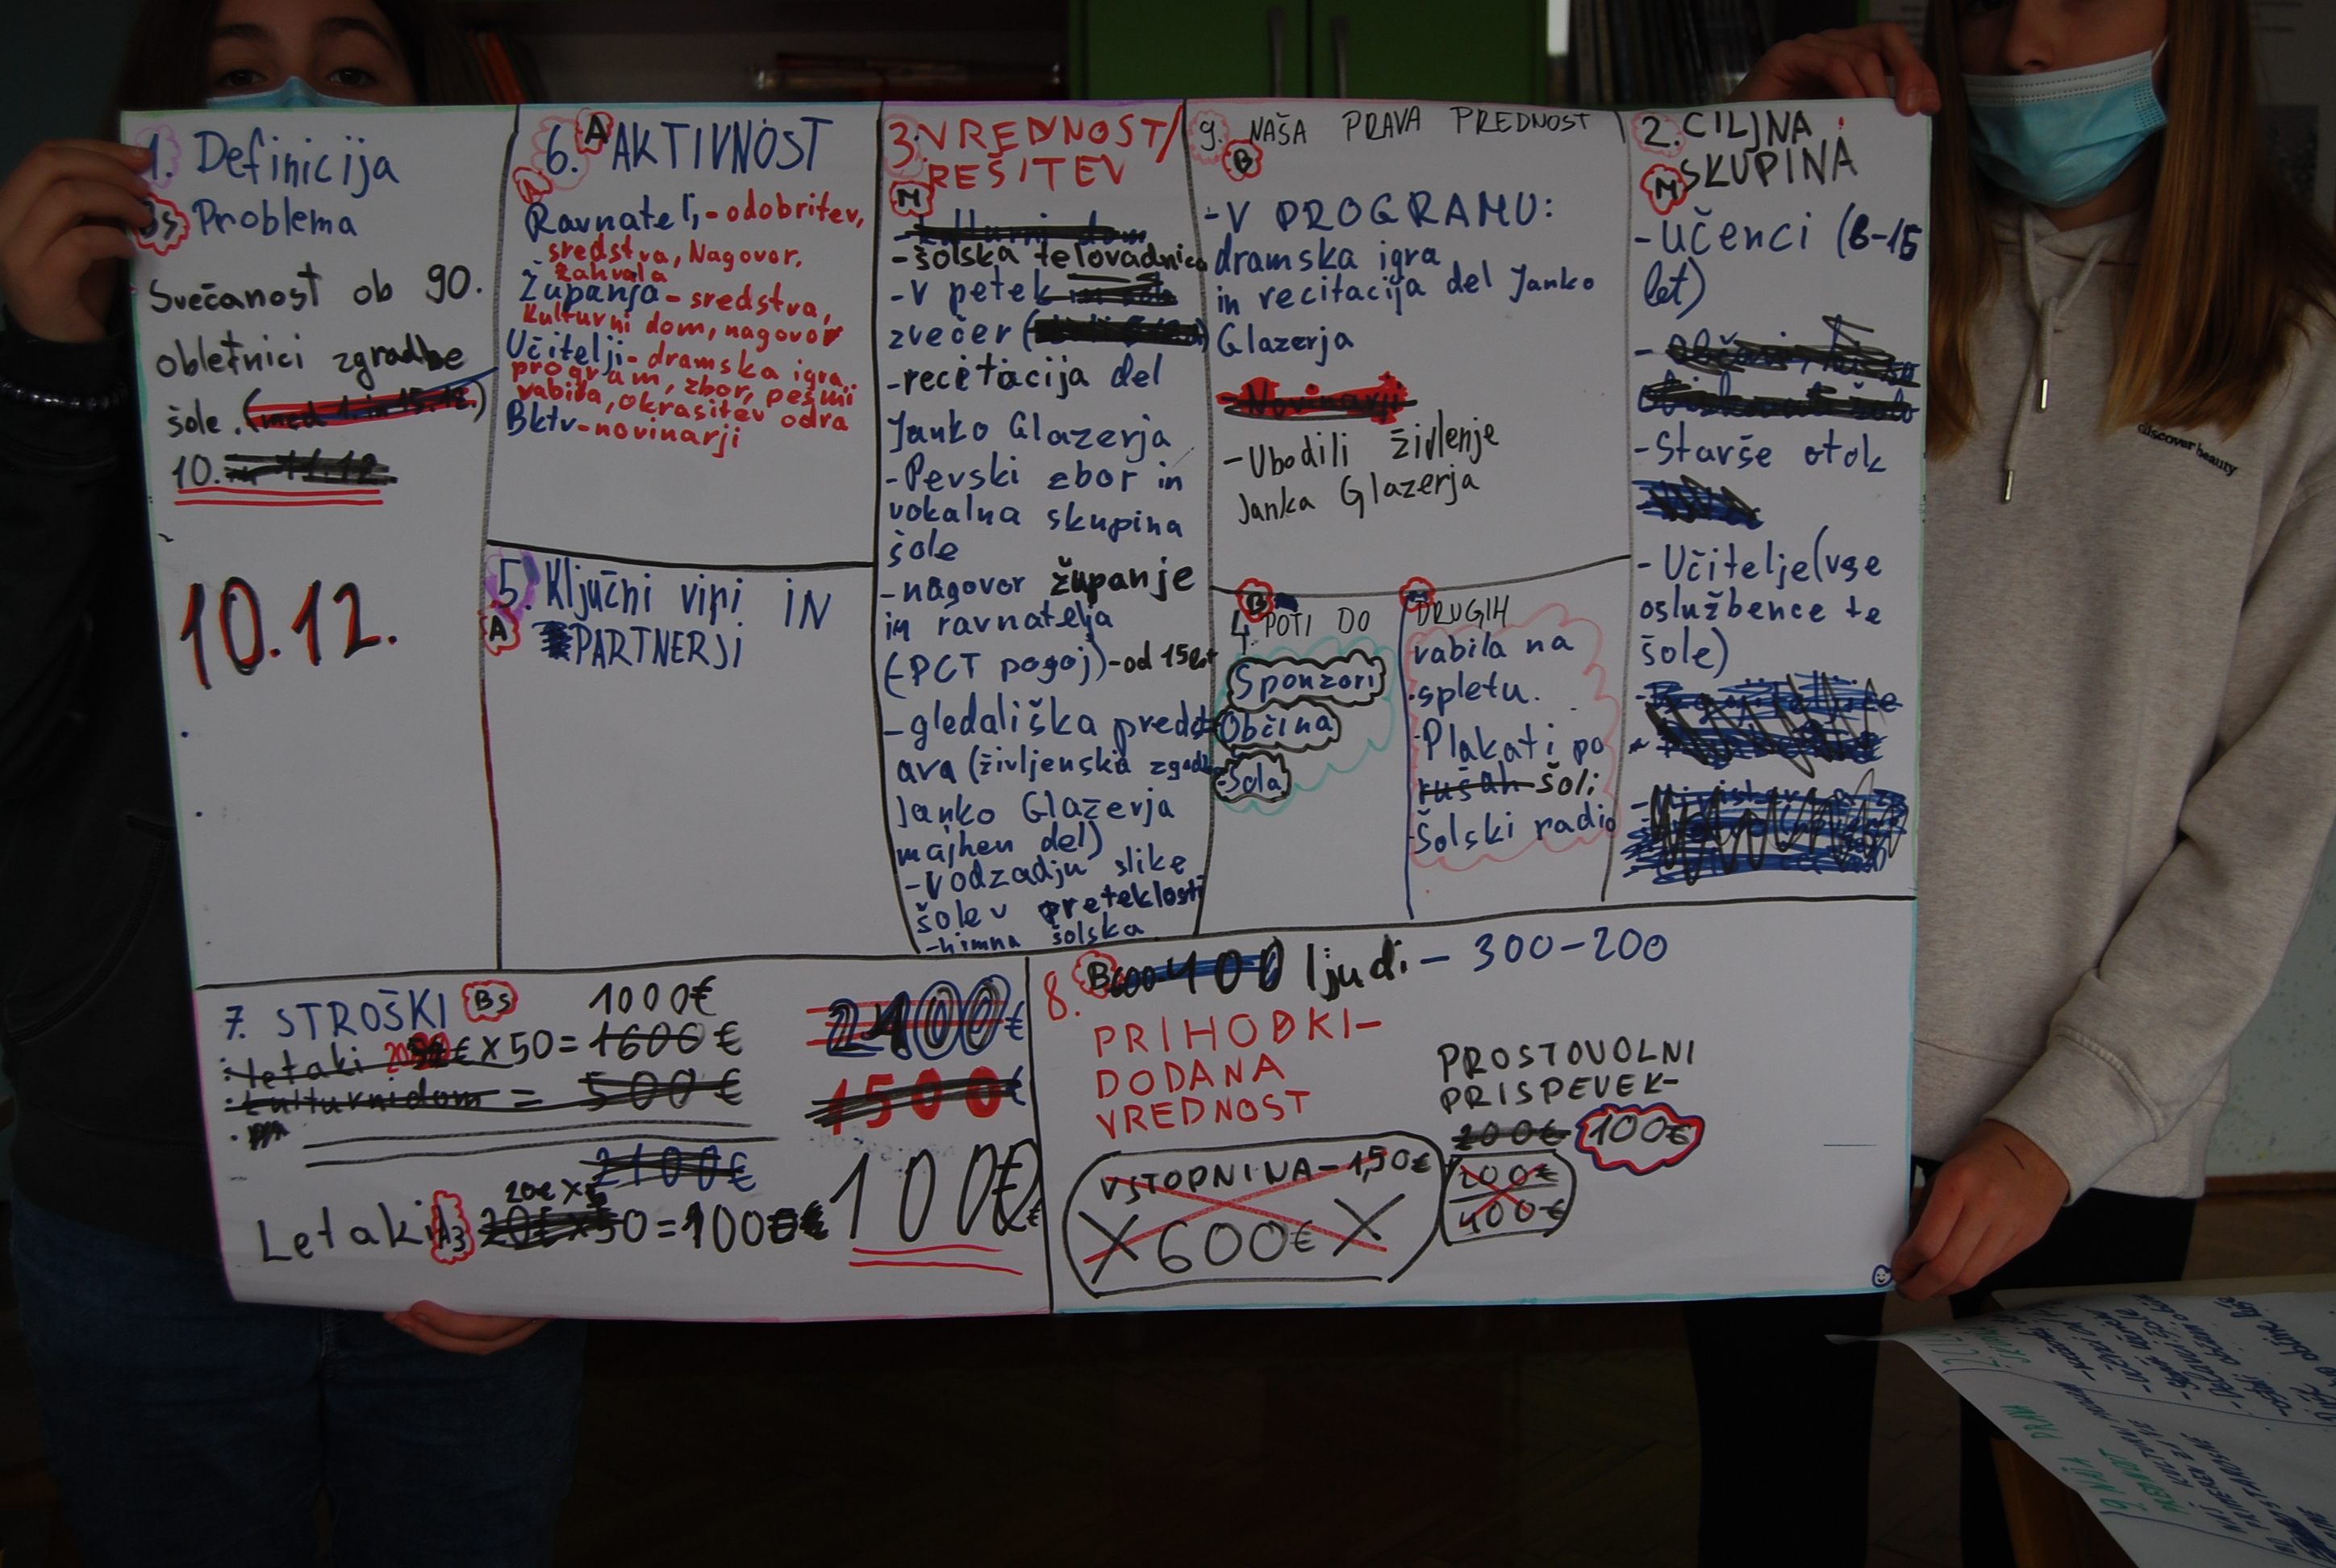 1. Definicija
Bs Problema
Svečanost ob 90.
obletnici zgradbe
šole. (med 1. in 15.12.)
10.
10.12.
6. A AKTIVNOST
A
Ravnatelj,-odobritev,
sredstva, Nagovor,
zahvala
Županja-sredstva,
kulturni dom, nagovor
Učitelji-dramska igra,
program, zbor, pesmi
vabila, okrasitev odra
Bktv-novinarji
5. Ključni viri IN
A PARTNERJI
3. VREDNOST/
REŠITEV
M
-kulturni dom
-šolska telovadnica
-V petek
zvečer (
-recitacija del
Janko Glazerja
-Pevski zbor in
vokalna skupina
šole
-nagovor županje
in ravnatelja
(-PCT pogoj)-od 15let
-gledališka predst
ava (življenska zgodb
Janko Glazerja
majhen del)
-V odzadju slike
šole v preteklosti
-himna šolska
9. NAŠA PRAVA PREDNOST
B
-V PROGRAMU:
dramska igra
in recitacija del Janko
Glazerja
-Novinarji
-Ubodili življenje
Janka Glazerja
B
4 POTI DO DRUGIH
Sponzori
Občina
-Šola
vabila na
spletu.
·Plakati po
rušah šoli
·Šolski radio
2. CILJNA
SKUPINA
M
-Učenci (6-15
let)
-Starše otok
-Učitelje(vse
oslužbence te
šole)
7. STROŠKI Bs 1000€
·letaki € x50= 1600€
·kulturni dom = 500€
2100€
2400€
1500€
20€ x5
Letaki A3 20€ x50 =100€
100€
8. B 600-400 ljudi - 300-200
PRIHODKI-
DODANA
VREDNOST
VSTOPNINA-1,50€
X 600€ X
PROSTOVOLNI
PRISPEVEK-
200€ 100€
200€
400€
discover beauty